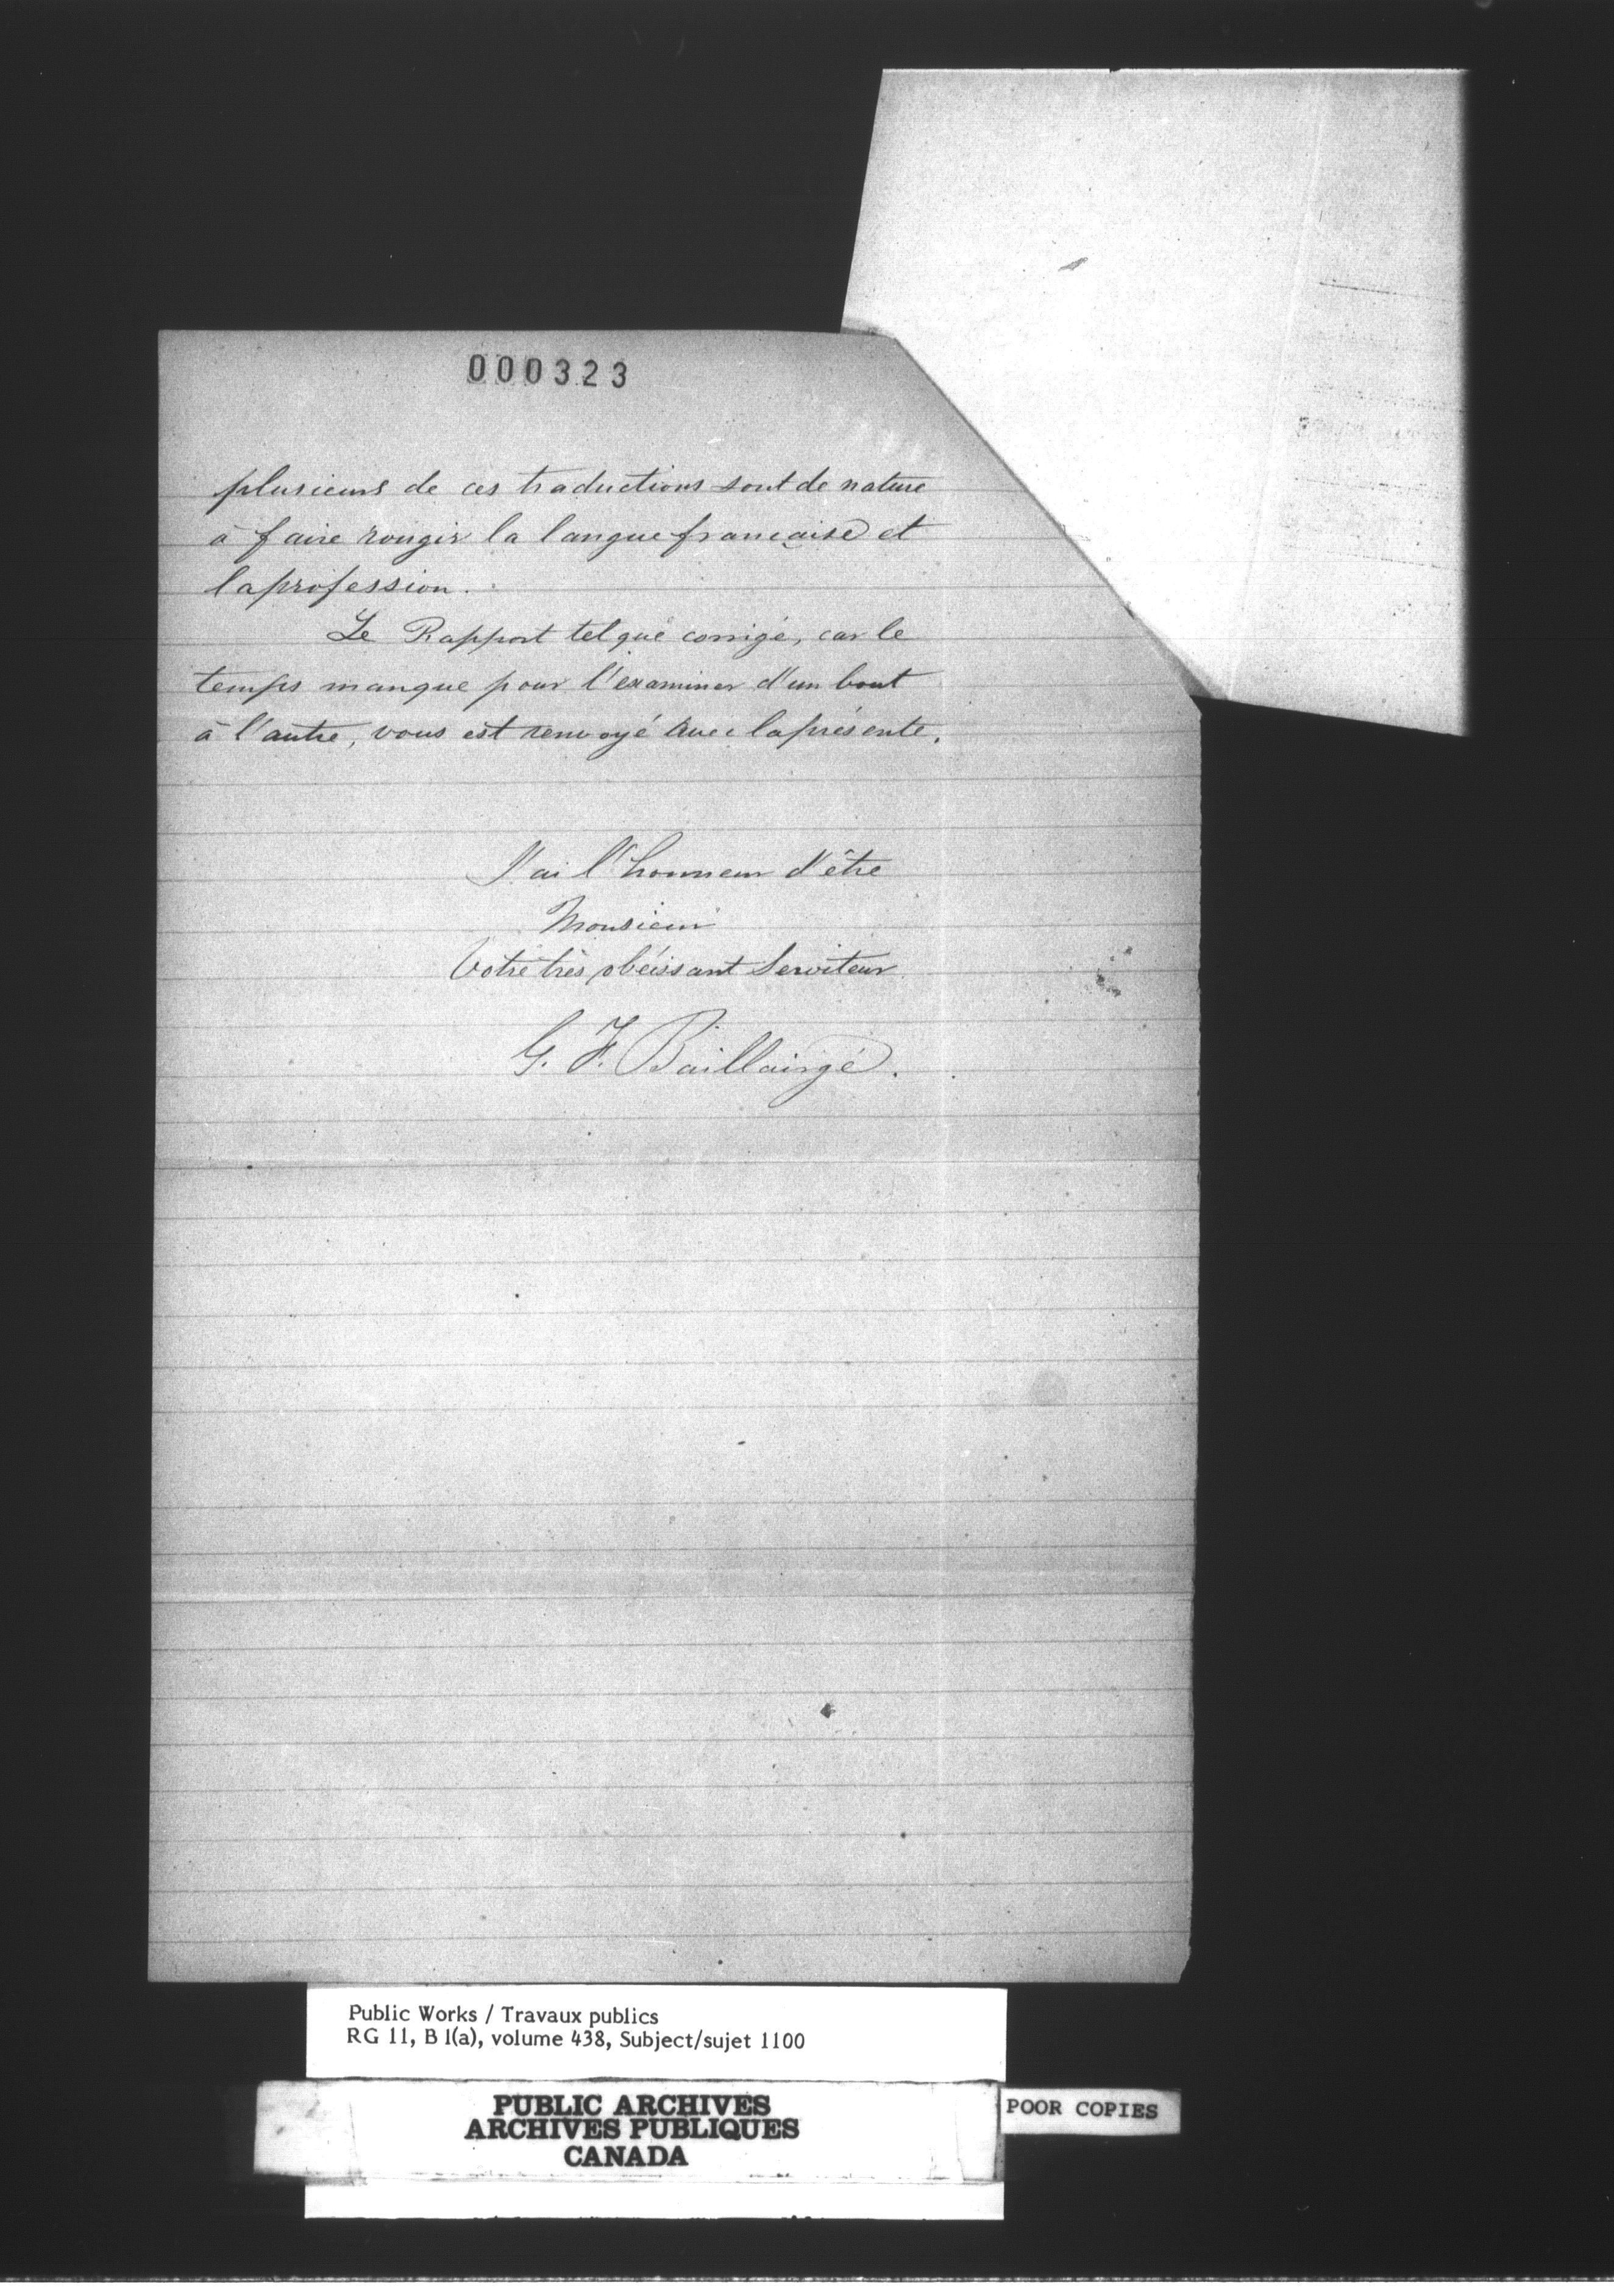 000323
plusieurs de ces traductions sont de nature
à faire rougir la langue française et
la profession.
Le Rapport tel que corrigé, car le
temps manque pour l'examiner d'un bout
à l'autre, vous est renvoyé avec la présente.
J'ai l'honneur d'être
Monsieur
Votre très obéissant Serviteur
G. F. Baillairgé.
Public Works / Travaux publics
RG 11, B 1(a), volume 438, Subject/sujet 1100
PUBLIC ARCHIVES
ARCHIVES PUBLIQUES
CANADA
POOR COPIES